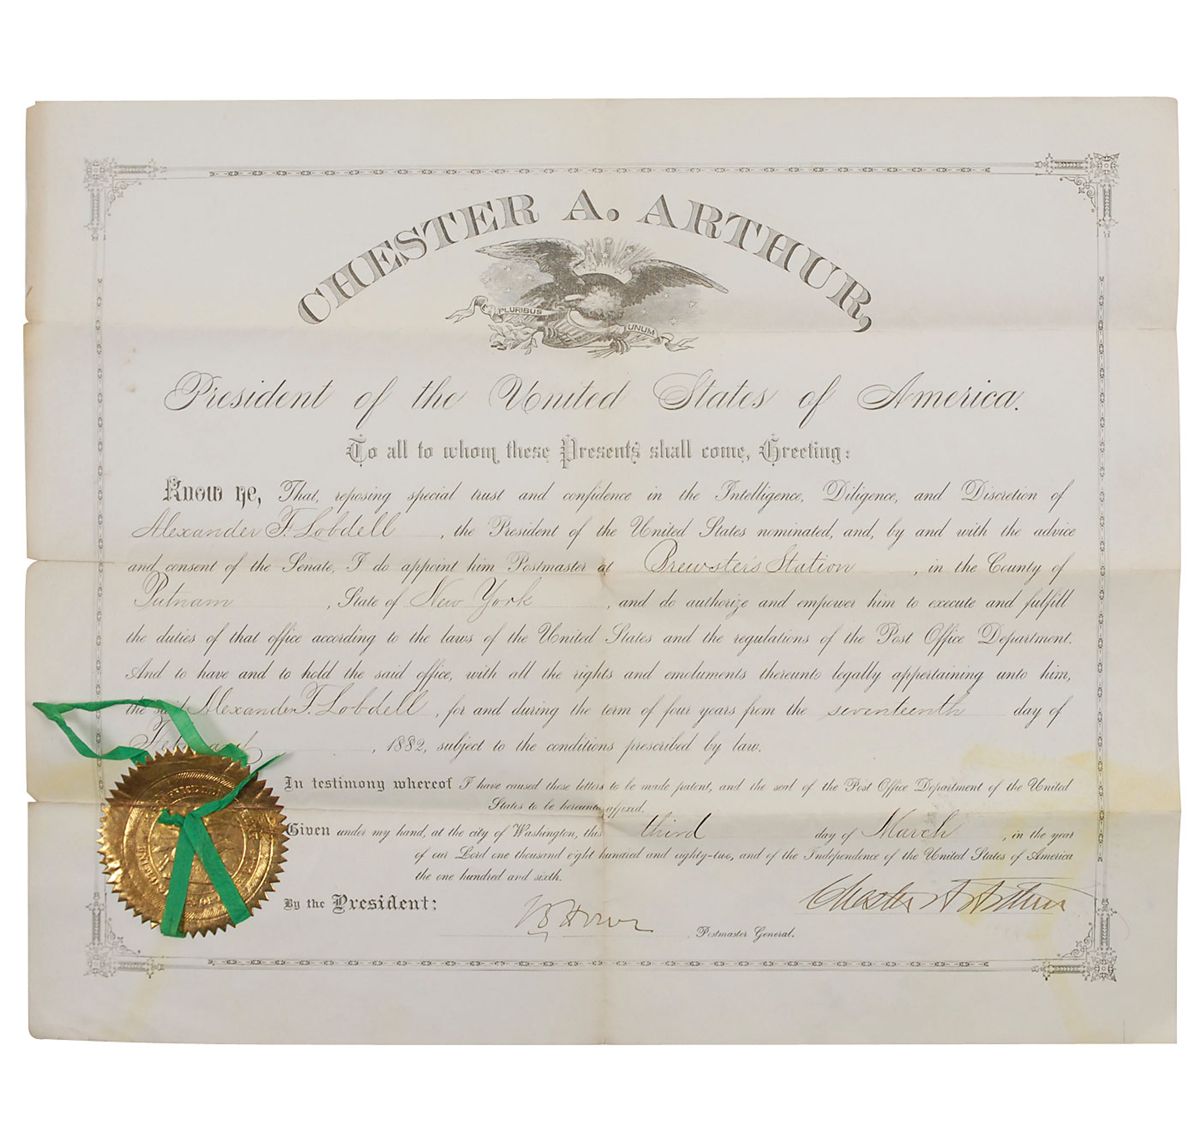 CHESTER A. ARTHUR,
PLURIBUS
UNUM
President of the United States of America.
To all to whom these Presents shall come, Greeting:
Know ye, That, reposing special trust and confidence in the Intelligence, Diligence, and Discretion of
Alexander F. Lobdell, the President of the United States nominated, and, by and with the advice
and consent of the Senate, I do appoint him Postmaster at Brewster's Station, in the County of
Putnam, State of New York, and do authorize and empower him to execute and fulfill
the duties of that office according to the laws of the United States and the regulations of the Post Office Department.
And to have and to hold the said office, with all the rights and emoluments thereunto legally appertaining unto him,
the said Alexander F. Lobdell, for and during the term of four years from the seventeenth day of
, 1882, subject to the conditions prescribed by law.
In testimony whereof I have caused these letters to be made patent, and the seal of the Post Office Department of the United
States to be hereunto affixed.
Given under my hand, at the city of Washington, this third day of March, in the year
of our Lord one thousand eight hundred and eighty-two, and of the Independence of the United States of America
the one hundred and sixth.
Chester A Arthur
By the President:
Postmaster General.